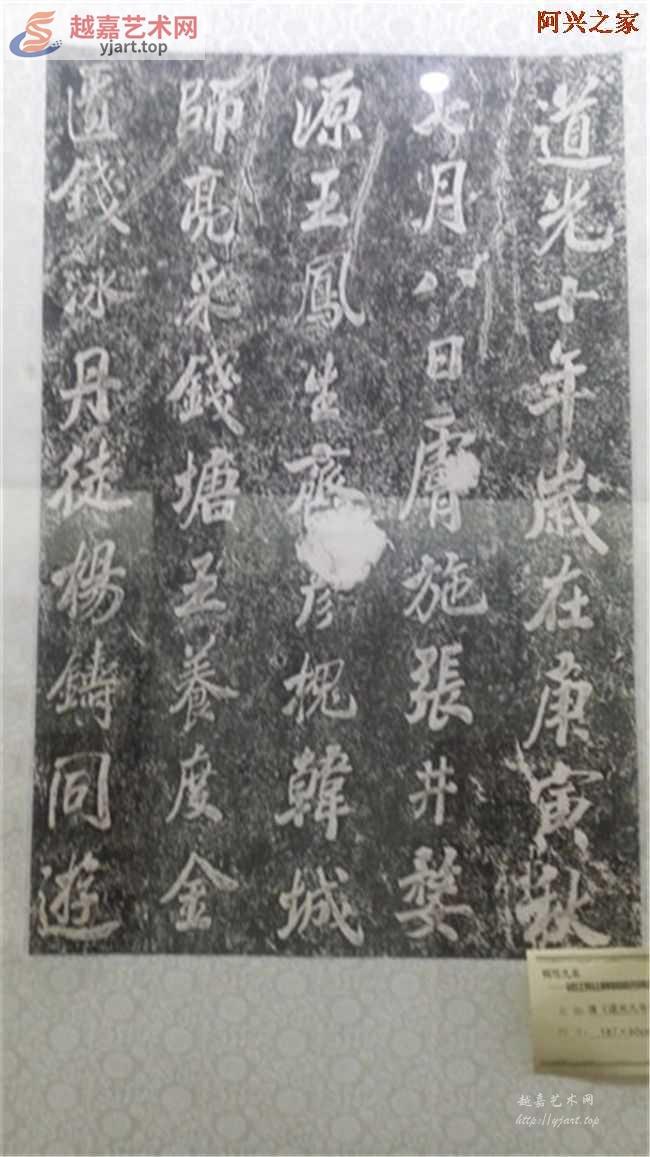 越嘉艺术网
yjart.top
阿兴之家
道光十年歲在庚寅秋
七月八日膚施張井婺
源王鳳生齊彦槐韓城
師亮采錢塘王養度金
匱錢泳丹徒楊鑄同遊
越嘉艺术网
http://yjart.top